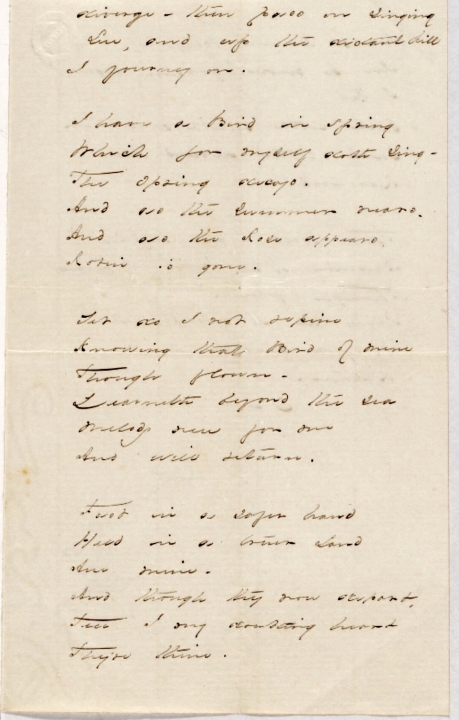 diverge - then pass on singing
Sue, and up the distant hill
I journey on.
I have a Bird in spring
Which for myself doth sing -
The spring decoys.
And as the summer nears.
And as the Rose appears,
Robin is gone.
Yet do I not repine
Knowing that Bird of mine
Though flown -
Learneth beyond the sea
Melody new for me
And will return.
Fast in a safer hand
Held in a truer Land
Are mine -
And though they now depart,
Tell I my doubting heart
They're thine.